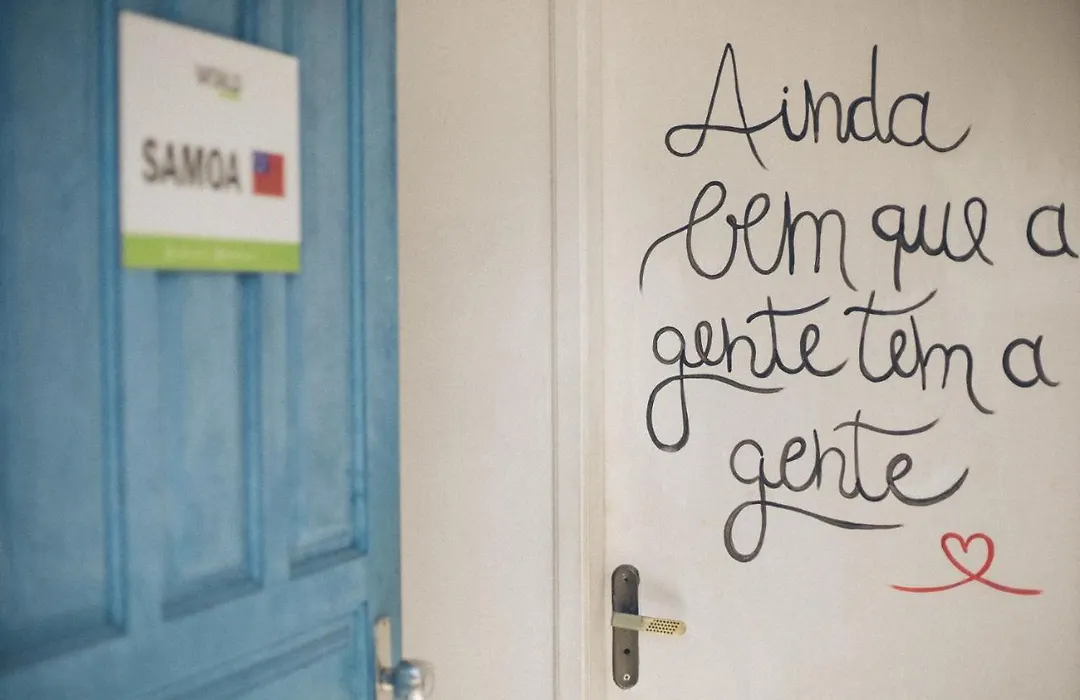 WORLD
SAMOA
Ainda
bem que a
gente tem a
gente